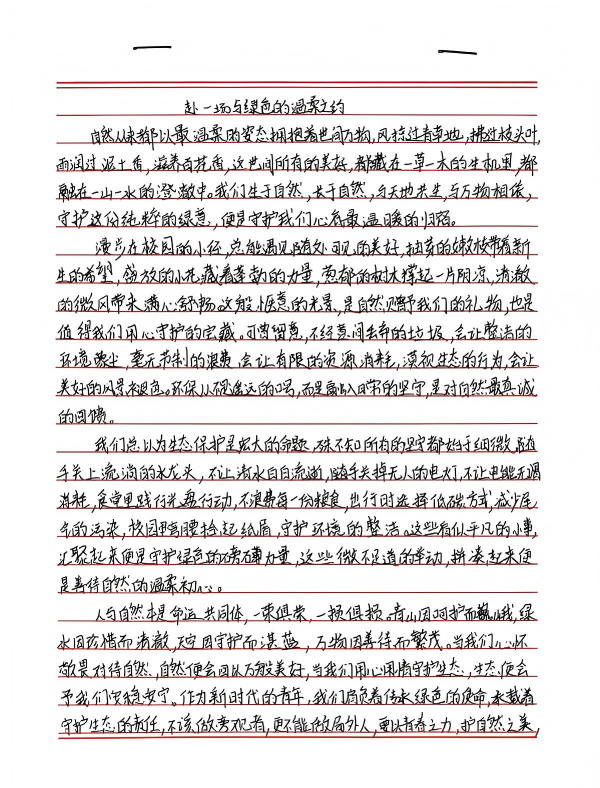 赴一场与绿色的温柔之约
自然从来都以最温柔的姿态拥抱着世间万物,风掠过青草地,拂过枝头叶,
雨润过泥土香,滋养百花香,这世间所有的美好,都藏在一草一木的生机里,都
融在一山一水的澄澈中。我们生于自然,长于自然,与天地共生,与万物相依,
守护这份纯粹的绿意,便是守护我们心底最温暖的归宿。
漫步在校园的小径,总能遇见随处可见的美好,抽芽的嫩枝带着新
生的希望,绽放的小花藏着蓬勃的力量,葱郁的树木撑起一片阴凉,清澈
的微风带来满心舒畅。这般惬意的光景,是自然赠予我们的礼物,也是
值得我们用心守护的宝藏。可曾留意,不经意间丢弃的垃圾,会让整洁的
环境蒙尘,毫无节制的浪费,会让有限的资源消耗,漠视生态的行为,会让
美好的风景褪色。环保从不是遥远的口号,而是融入日常的坚守,是对自然最真诚
的回馈。
我们总以为生态保护是宏大的命题,殊不知所有的坚守都始于细微,随
手关上流淌的水龙头,不让清水白白流逝,随手关掉无人的电灯,不让电能无谓
消耗,食堂里践行光盘行动,不浪费每一份粮食,出行时选择低碳方式,减少尾
气的污染,校园里弯腰捡起纸屑,守护环境的整洁。这些看似平凡的小事,
汇聚起来便是守护绿色的磅礴力量,这些微不足道的举动,拼凑起来便
是善待自然的温柔初心。
人与自然本是命运共同体,一荣俱荣,一损俱损。青山因呵护而巍峨,绿
水因珍惜而清澈,天空因守护而湛蓝,万物因善待而繁茂。当我们心怀
敬畏对待自然,自然便会回以万般美好,当我们用心用情守护生态,生态便会
予我们安稳安宁。作为新时代的青年,我们肩负着传承绿色的使命,承载着
守护生态的责任,不该做旁观者,更不能做局外人,要以青春之力,护自然之美,